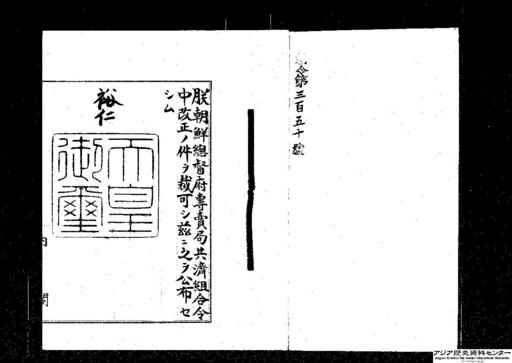 令第三百五十號
朕朝鮮總督府專賣局共濟組合令
中改正ノ件ヲ裁可シ茲ニ之ヲ公布セ
シム
裕仁
天皇
御璽
内
閣
アジア歴史資料センター
Japan Center for Asian Historical Records